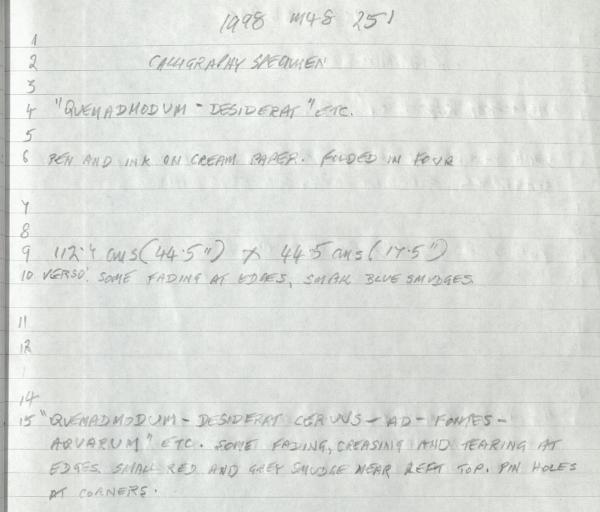 1998 M48 251
1
2 CALLIGRAPHY SPECIMEN
3
4 "QUEMADMODUM - DESIDERAT" ETC.
5
6 PEN AND INK ON CREAM PAPER. FOLDED IN FOUR
7
8
9 112.4 cms (44.5") x 44.5 cms (17.5")
10 VERSO: SOME FADING AT EDGES, SMALL BLUE SMUDGES
11
12
14
15 "QUEMADMODUM - DESIDERAT CERVUS - AD - FONTES -
AQUARUM" ETC. SOME FADING, CREASING AND TEARING AT
EDGES. SMALL RED AND GREY SMUDGE NEAR LEFT TOP. PIN HOLES
AT CORNERS.